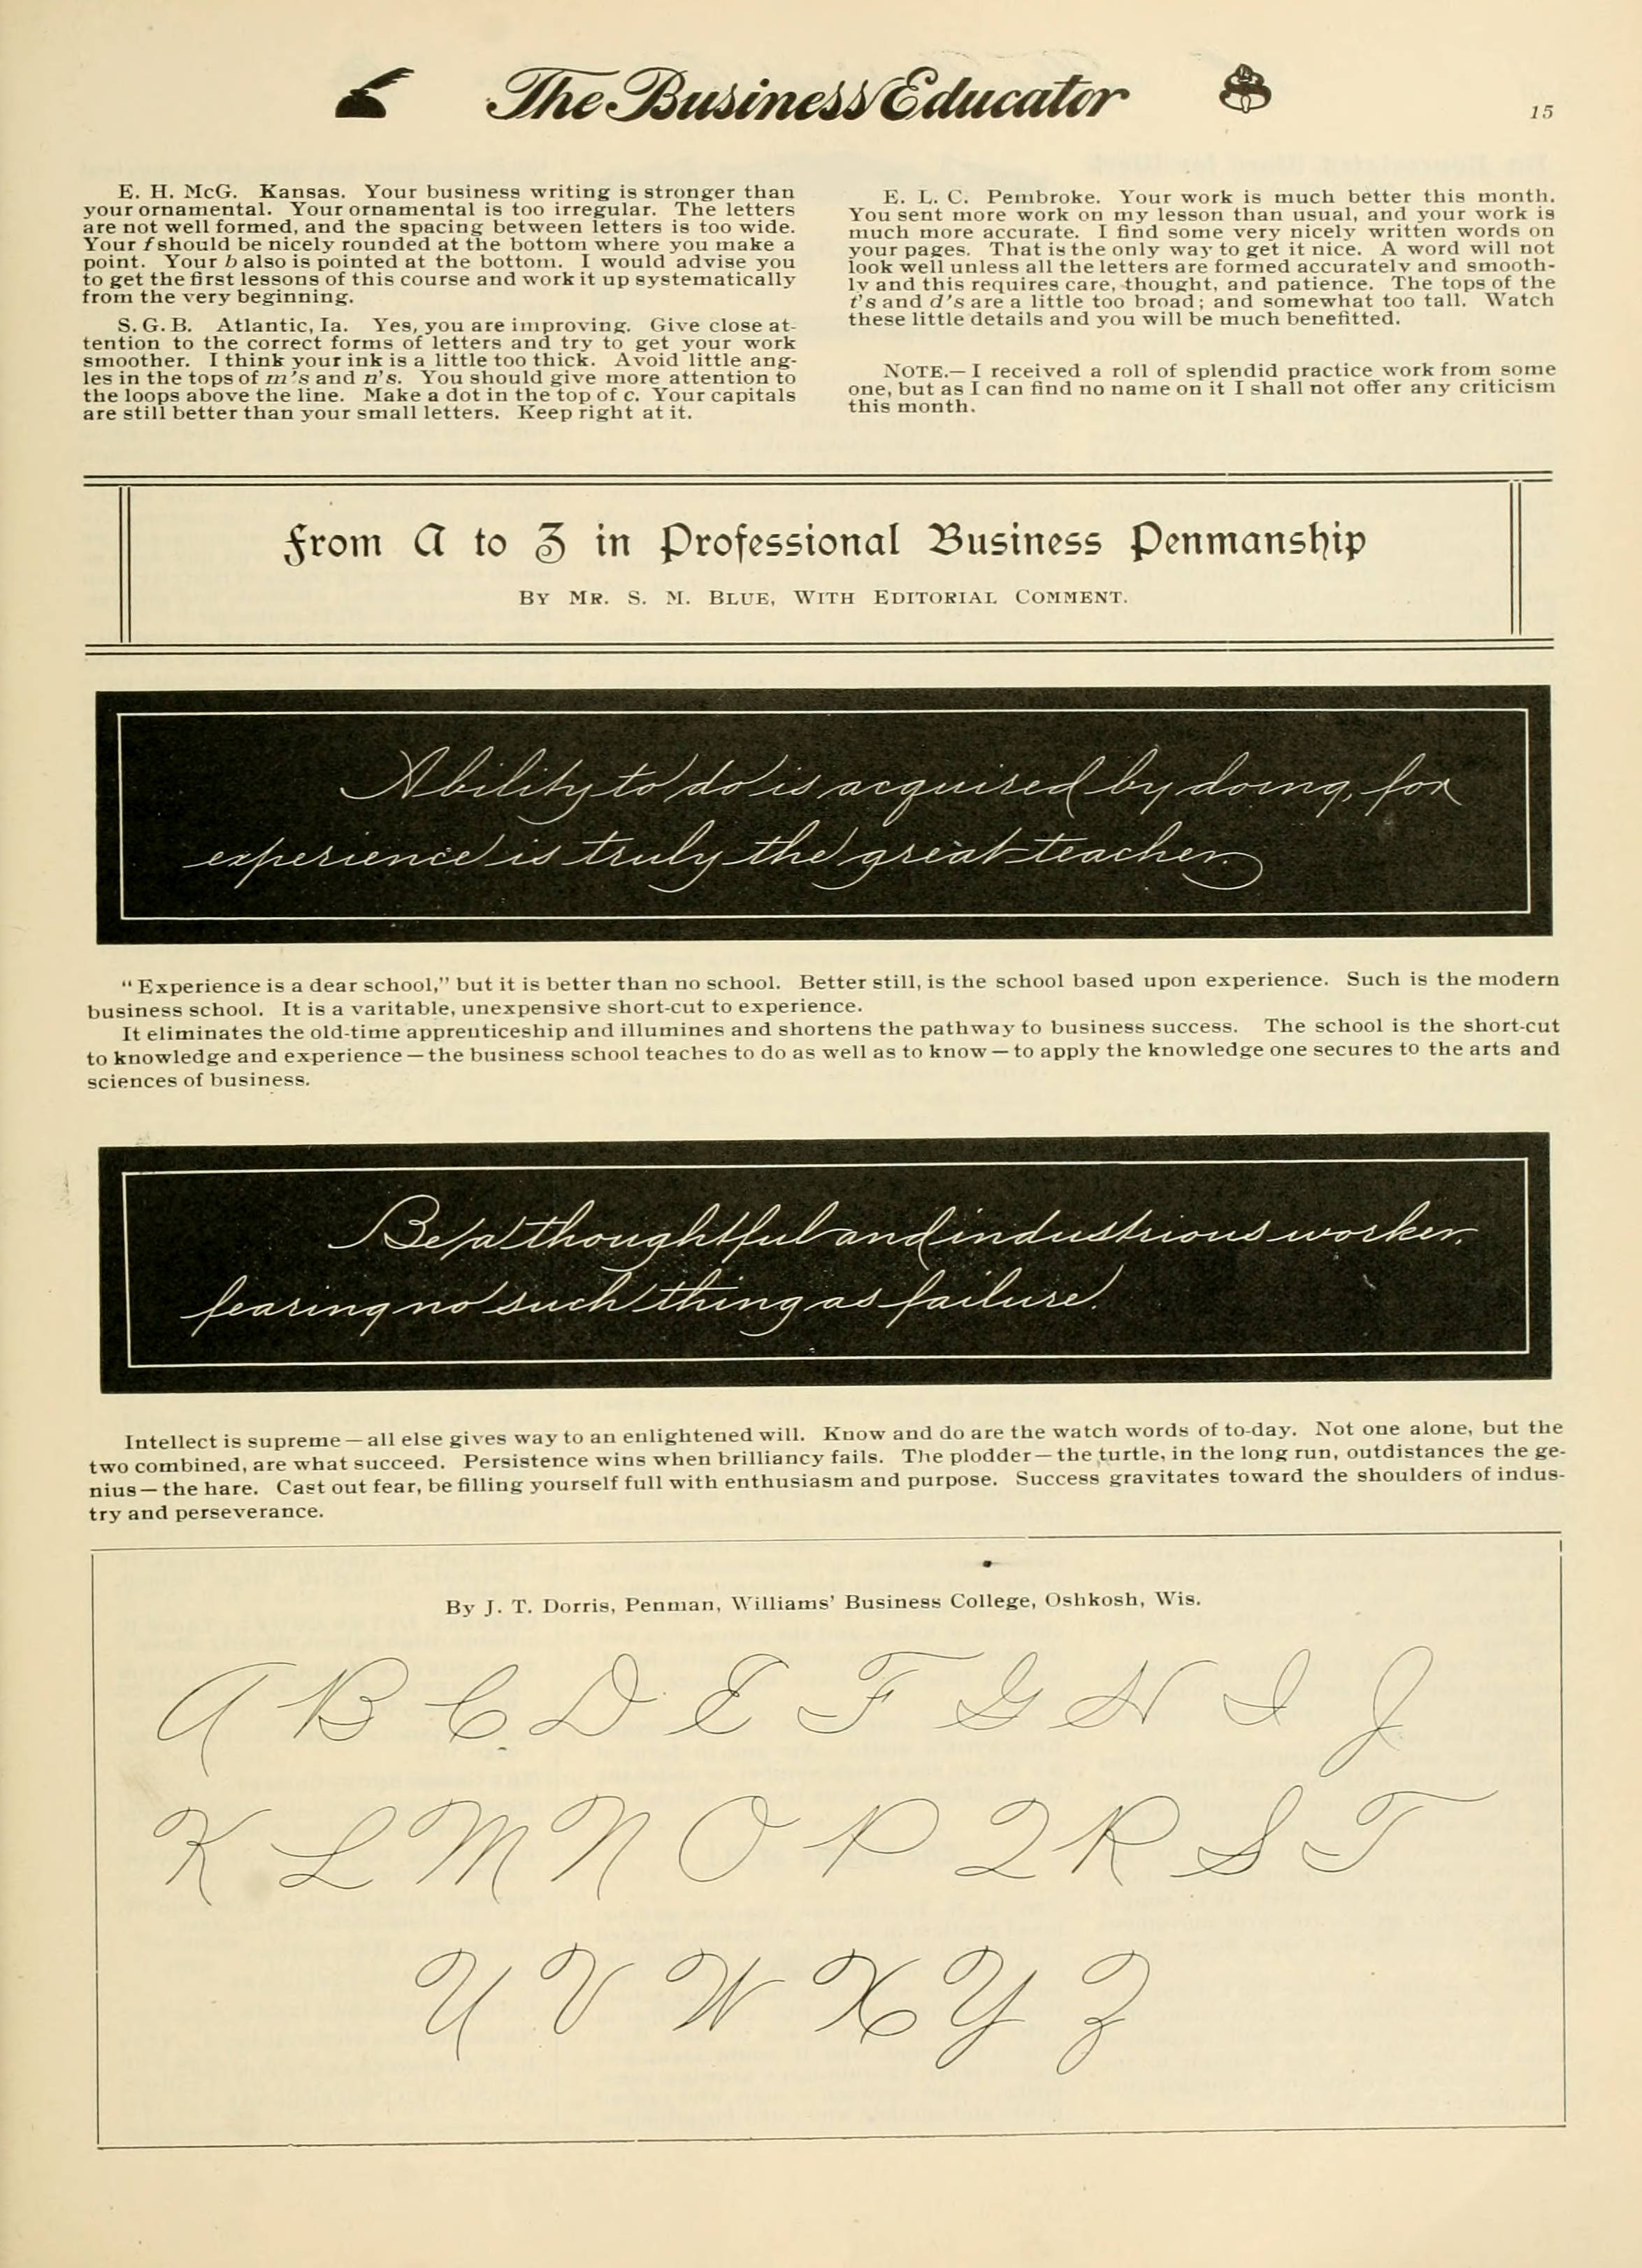 The Business Educator
15
E. H. McG. Kansas. Your business writing is stronger than
your ornamental. Your ornamental is too irregular. The letters
are not well formed, and the spacing between letters is too wide.
Your f should be nicely rounded at the bottom where you make a
point. Your b also is pointed at the bottom. I would advise you
to get the first lessons of this course and work it up systematically
from the very beginning.
S. G. B. Atlantic, Ia. Yes, you are improving. Give close at-
tention to the correct forms of letters and try to get your work
smoother. I think your ink is a little too thick. Avoid little ang-
les in the tops of m's and n's. You should give more attention to
the loops above the line. Make a dot in the top of c. Your capitals
are still better than your small letters. Keep right at it.
E. L. C. Pembroke. Your work is much better this month.
You sent more work on my lesson than usual, and your work is
much more accurate. I find some very nicely written words on
your pages. That is the only way to get it nice. A word will not
look well unless all the letters are formed accurately and smooth-
ly and this requires care, thought, and patience. The tops of the
t's and d's are a little too broad; and somewhat too tall. Watch
these little details and you will be much benefitted.
NOTE.—I received a roll of splendid practice work from some
one, but as I can find no name on it I shall not offer any criticism
this month.
From A to Z in Professional Business Penmanship
BY MR. S. M. BLUE, WITH EDITORIAL COMMENT.
Ability to do is acquired by doing, for
experience is truly the great teacher.
"Experience is a dear school," but it is better than no school. Better still, is the school based upon experience. Such is the modern
business school. It is a varitable, unexpensive short-cut to experience.
It eliminates the old-time apprenticeship and illumines and shortens the pathway to business success. The school is the short-cut
to knowledge and experience—the business school teaches to do as well as to know—to apply the knowledge one secures to the arts and
sciences of business.
Be a thoughtful and industrious worker,
fearing no such thing as failure.
Intellect is supreme—all else gives way to an enlightened will. Know and do are the watch words of to-day. Not one alone, but the
two combined, are what succeed. Persistence wins when brilliancy fails. The plodder—the turtle, in the long run, outdistances the ge-
nius—the hare. Cast out fear, be filling yourself full with enthusiasm and purpose. Success gravitates toward the shoulders of indus-
try and perseverance.
By J. T. Dorris, Penman, Williams' Business College, Oshkosh, Wis.
A B C D E F G H I J
K L M N O P Q R S T
U V W X Y Z